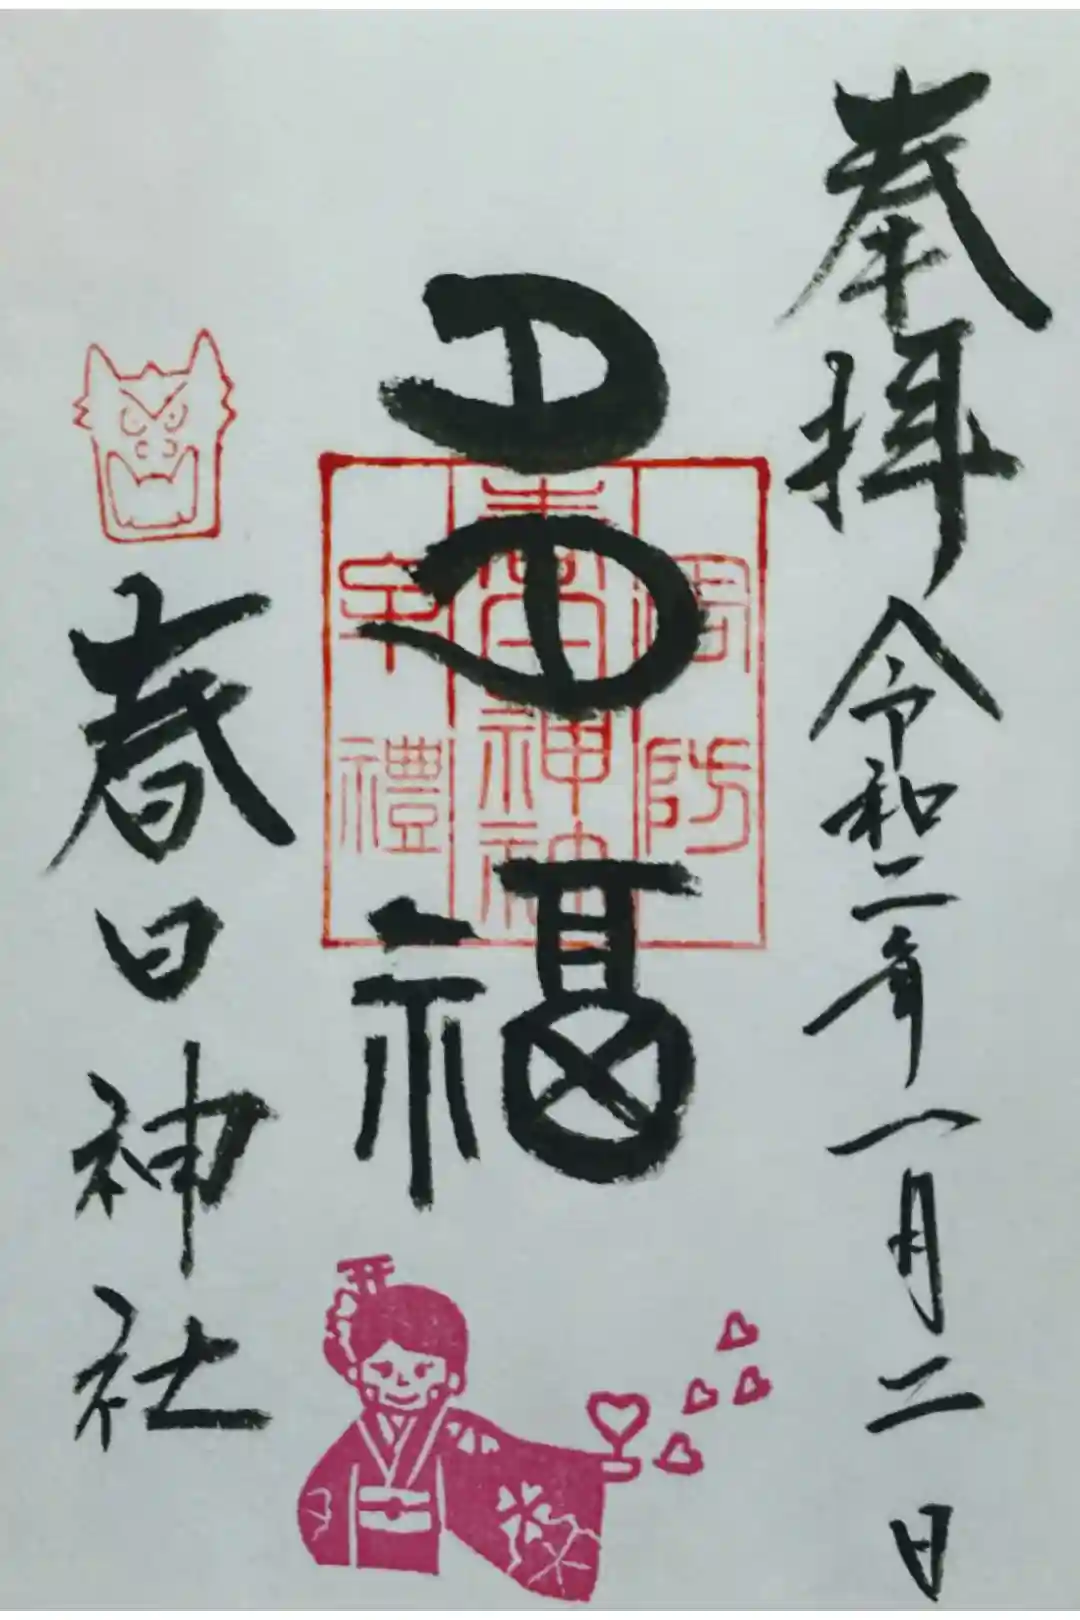 奉拝 令和二年一月二日
福
周防
神社
牟禮
春日神社